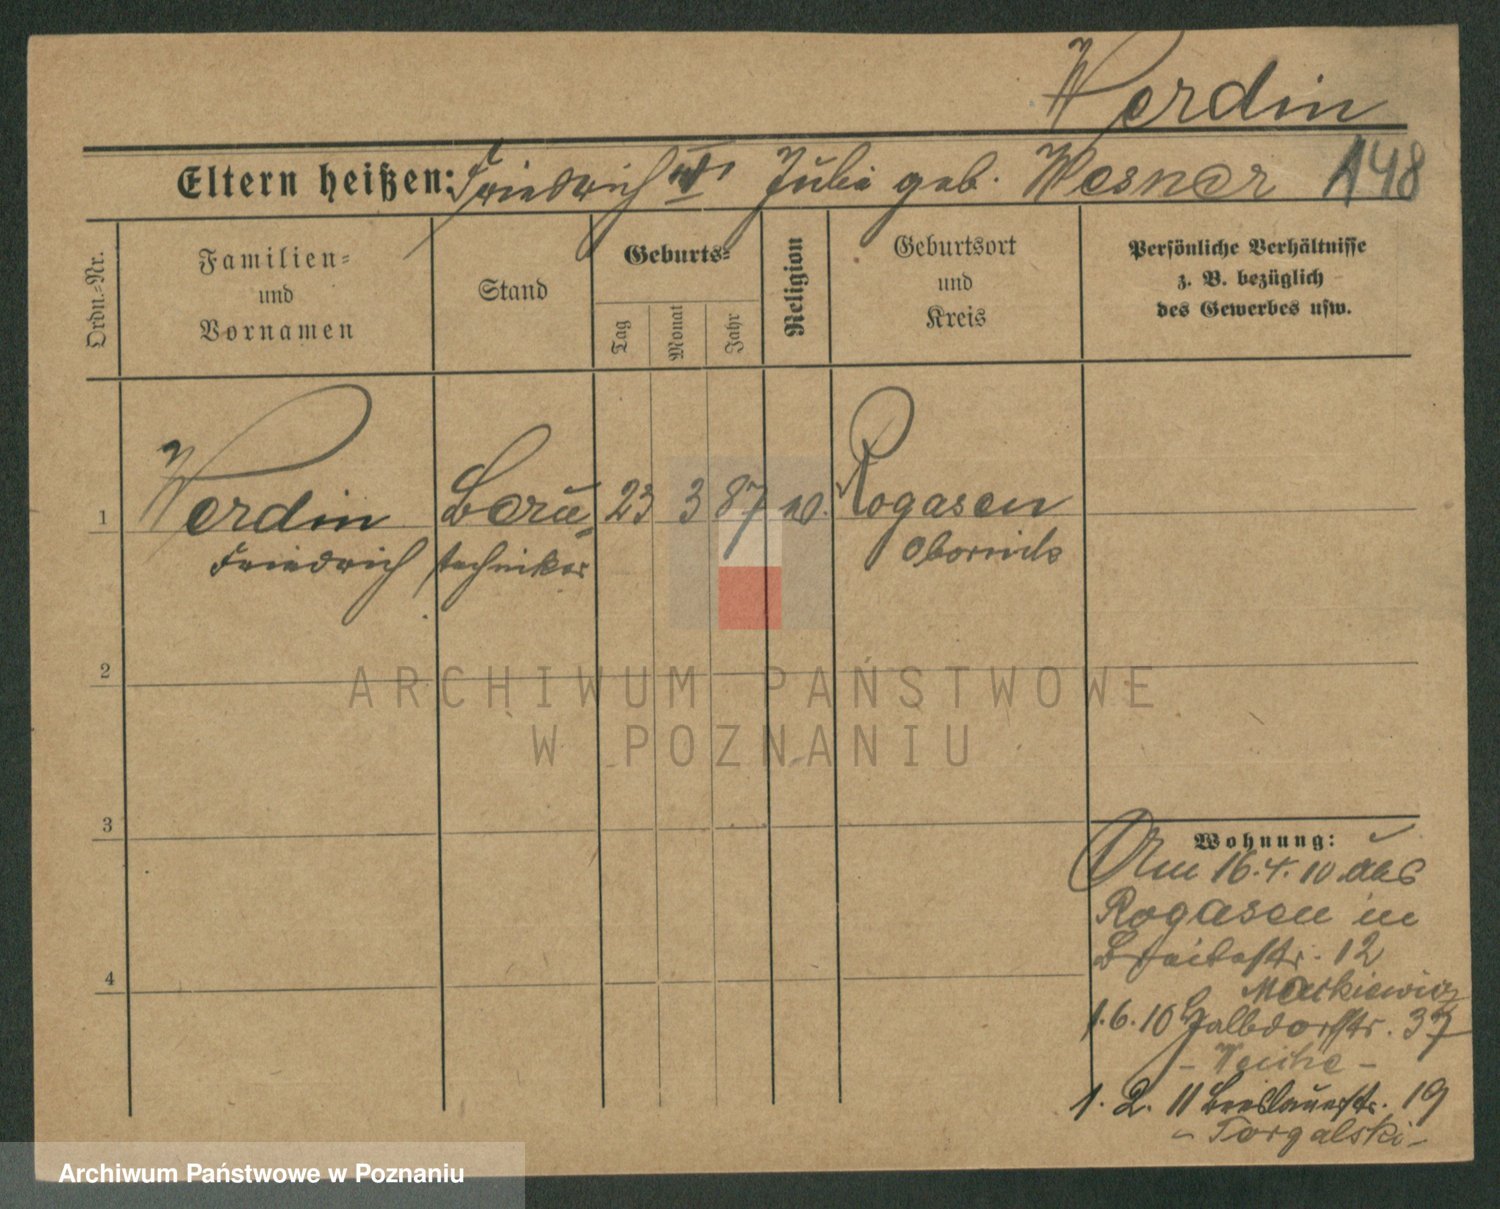 Werdin
Eltern heißen: Friedrich u. Julie geb. Wesner 148
Ordn.-Nr.
Familien-
und
Vornamen
Stand
Geburts-
Tag
Monat
Jahr
Religion
Geburtsort
und
Kreis
Persönliche Verhältnisse
z. B. bezüglich
des Gewerbes usw.
1 Werdin Bau= 23 3 87 Rogasen
Friedrich techniker Obornik
2
3
4
Wohnung:
Am 16.4.10 aus
Rogasen in
Breitestr. 12
1.6.10 Halbdorfstr. 37
1. 2. 11 Breslauerstr. 19
- Torgalski -
ARCHIWUM PAŃSTWOWE
W POZNANIU
Archiwum Państwowe w Poznaniu